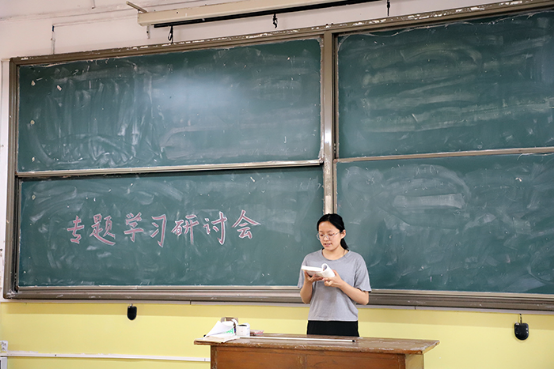 专题学习研讨会